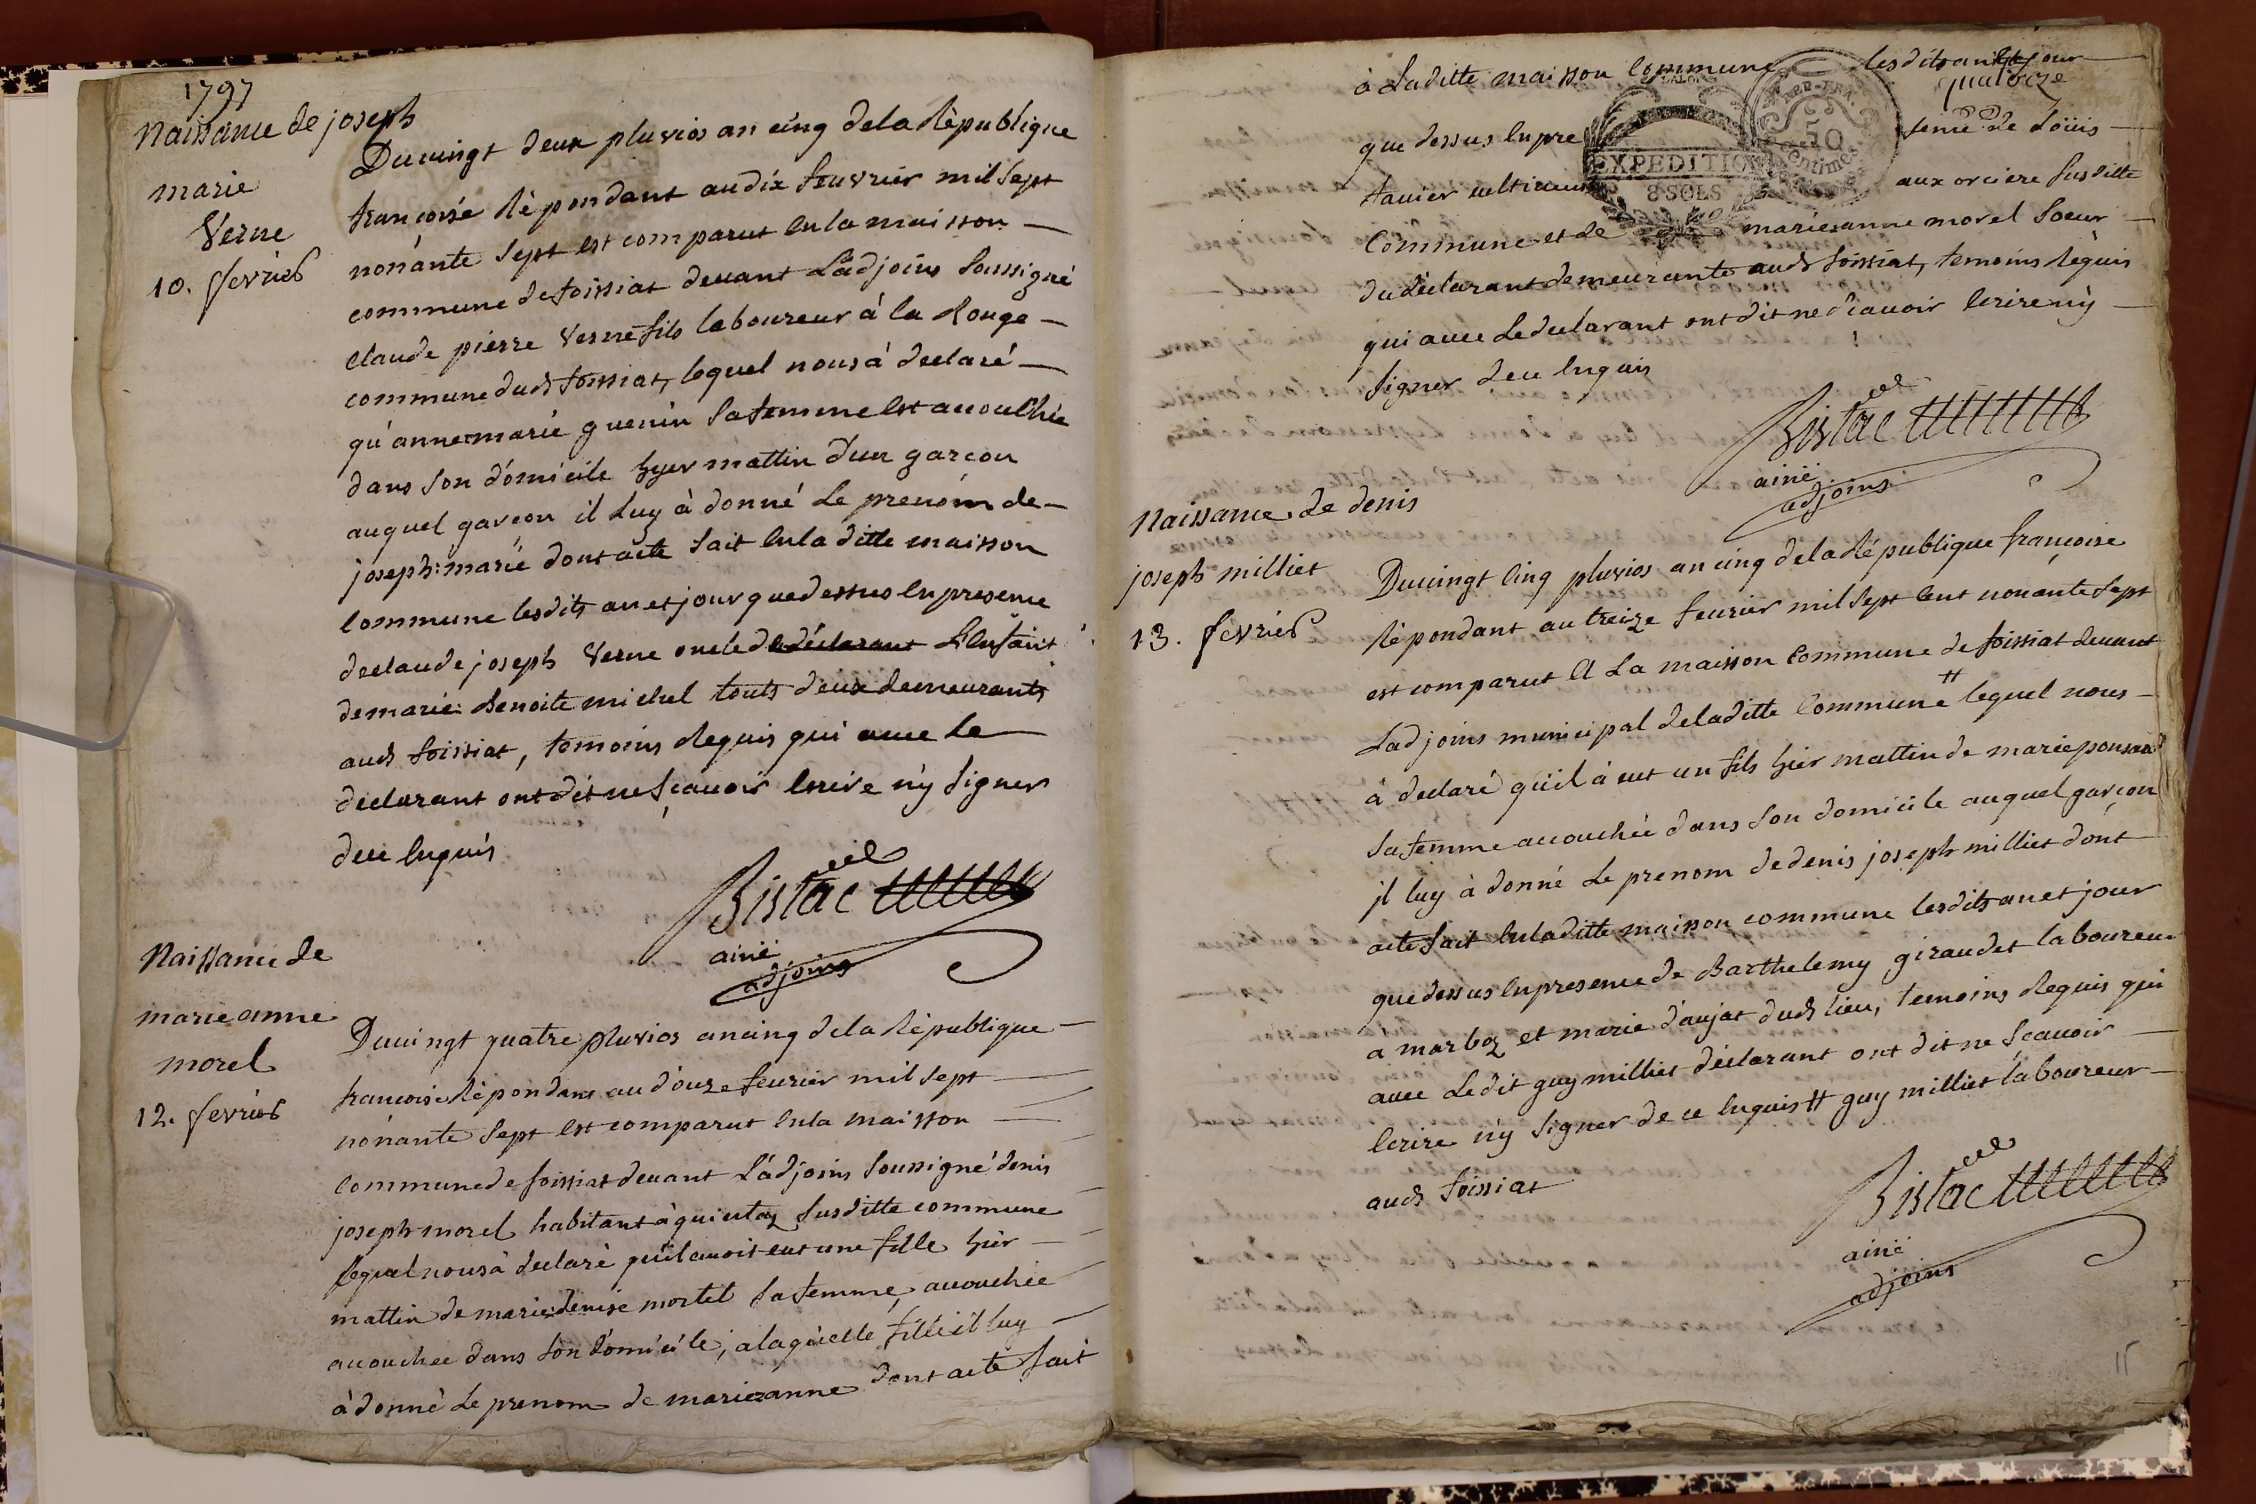 1797
Naissance de joseph
marie
Verne
10. fevrier
Du vingt deux pluvios an cinq de la République
francoise Répondant au dix feuvrier mil sept
nonante sept est comparut en la maisson
commune de foissiat devant L'adjoins soussigné
claude pierre Verne fils laboureur à la Rouge
commune dud foissiat, lequel nous à declaré
qu'anne marie guenin sa femme est accouchée
dans son domicile hyer mattin d'un garcon
auquel garcon il Luy à donné Le prenom de
joseph: marie dont acte fait en la ditte maisson
commune lesdits an et jour que dessus en presence
de claude joseph Verne oncle de L'enfant
de marie: Benoite michel touts deux demeurants
aud foissiat, temoins Requis qui avec le
declarant ont dit ne scavoir ecrire n'y signer
de ce enquis
Bistac
ainé
adjoins
Naissance de
marie anne
morel
12. fevrier
Du vingt quatre pluvios an cinq de la République
francoise Répondans au douze feuvrier mil sept
nonante sept est comparut en la maisson
commune de foissiat devant L'adjoins soussigné denis
joseph morel habitant à susditte commune
lequel nous à declaré qu'il avoit eut une fille hier
mattin de marie: denise mortel sa femme, accouchée
accouchee dans son domicile, a laquelle fille il luy
à donné Le prenom de marie:anne dont acte fait
à Laditte maisson commune lesdits an et jour
quatorze
que dessus en pre sence de Loüis
tavier cultivateur aux orciere susditte
Commune et de marie:anne morel soeur
du declarant demeurante aud foissiat, temoins Requis
qui avec Le declarant ont dit ne scavoir ecrire n'y
signer de ce enquis
EXPEDITION
8 SOLS
50
centimes
Bistac
ainé
adjoins
Naissance de denis
joseph milliet
13. fevrier
Du vingt cinq pluvios an cinq de la République francoise
Répondant au treize feuvrier mil sept cent nonante sept
est comparut A La maisson Commune de foissiat devant
L'adjoins municipal de laditte Commune # lequel nous
à declaré qu'il à eut un fils hier mattin de marie ponsard
sa femme accouchée dans son domicile auquel garcon
jl luy à donné Le prenom de denis joseph milliet dont
acte fait en laditte maisson commune lesdits an et jour
que dessus en presence de Barthelemy giraudet laboureur
a marboz et marie daujat dud lieu, temoins Requis qui
avec Ledit guy milliet declarant ont dit ne scavoir
ecrire n'y signer de ce enquis # guy milliet laboureur
aud foissiat
Bistac
ainé
adjoins